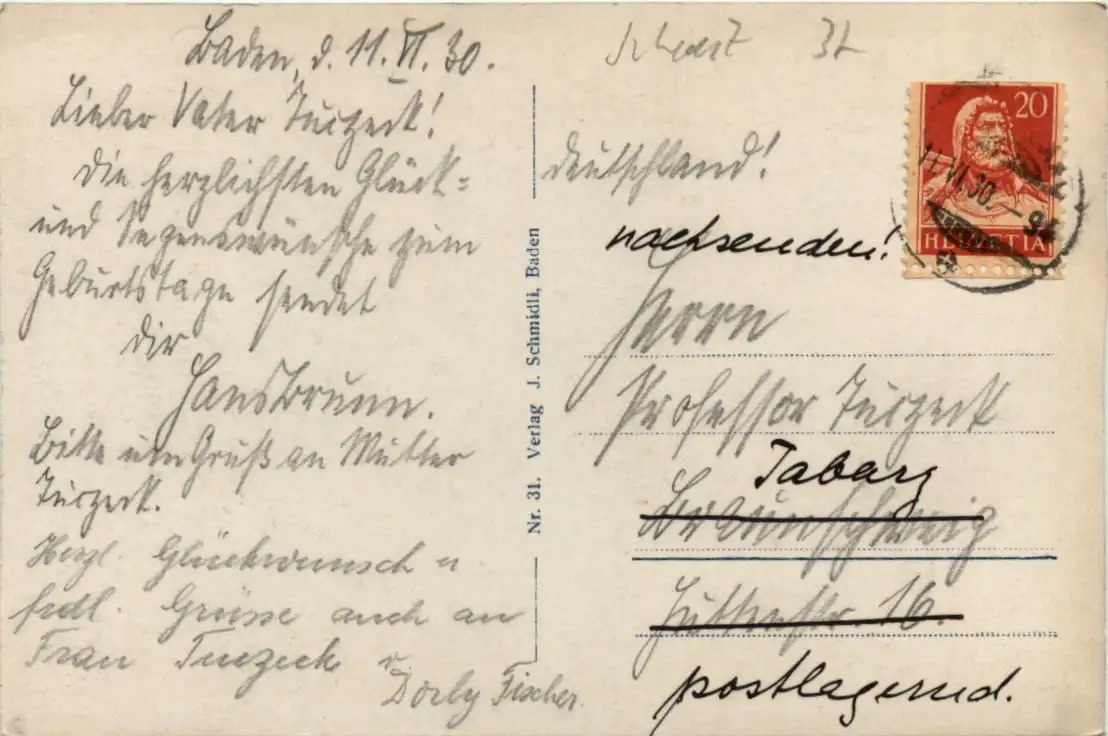 Baden, d. 11. VI. 30.
Lieber Vater Turzeck!
Die herzlichsten Glück-
und Segenswünsche zum
Geburtstage sendet
Dir
Hansbrunn.
Bitte um Gruß an Mutter
Turzeck.
Herzl. Glückwunsch u
frdl. Grüsse auch an
Frau Turzeck v.
Dorly Fischer.
Nr. 31. Verlag J. Schmidli, Baden
32
20
HELVETIA
11.VI.30.–9
Deutschland!
nachsenden!
Herrn
Professor Turzeck
Tabarz
Braunschweig
Huttenstr. 16.
postlagernd.